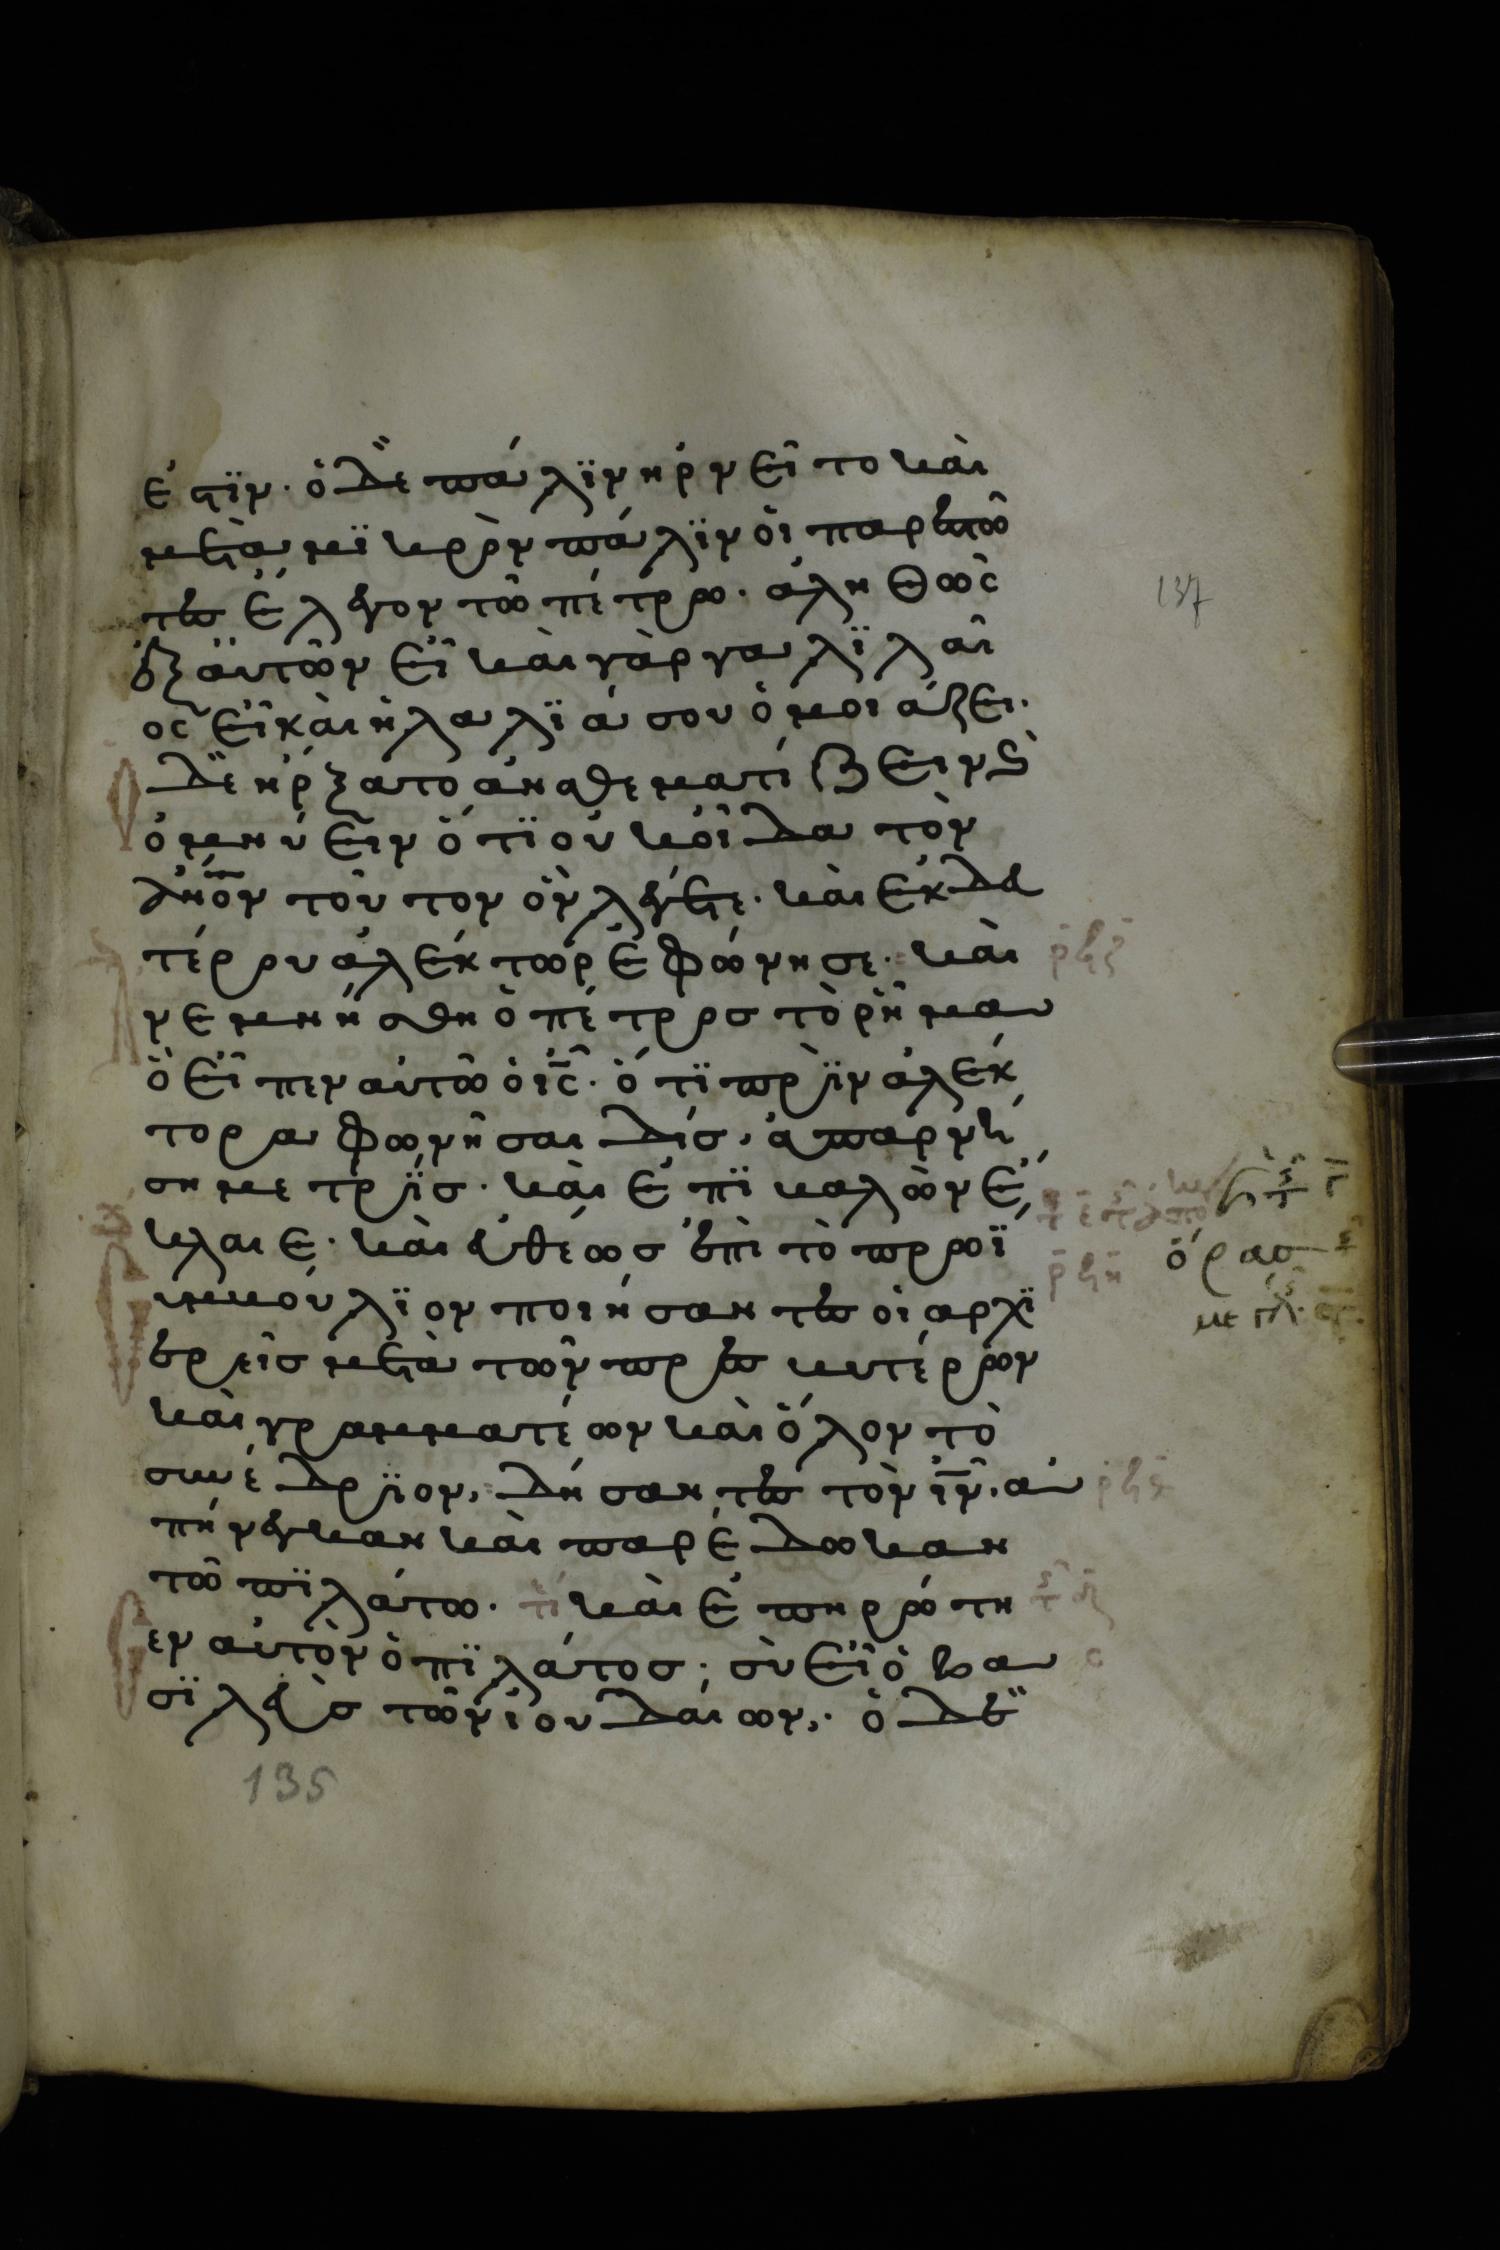 ἐστϊν· ὁ δὲ πάλϊν ἠρνεῖτο καὶ
μετὰ μϊκρὸν πάλϊν ὁι παρεστῶ
τες ἔλεγον τῶ πέτρω· ἀληθῶς
ἐξ ἀυτῶν εἶ καὶ γὰρ γαλϊλαῖ
ος εἶ καὶ ἡ λαλϊά σου ὁμοιάζει·
δὲ ἤρξατο ἀναθεματίζειν κ(αὶ)
ὀμνύειν ὅτϊ οὐκ οἶδα τὸν
ἄν̅ο̅ν τοῦτον ὃν λέγετε· καὶ ἐκ δευ
τέρου ἀλέκτωρ ἐφώνησε· καὶ
ρ̅ε̅ζ̅
νεμνήσθη ὁ πέτρος τὸ ῥῆμα
ὃ εἶπεν αὐτῶ ὁ ι̅ς̅· ὅτϊ πρὶν ἀλέκ
τορα φωνῆσαι δίς, ἀπαρνή
ση με τρίς· καὶ ἐπϊκαλὼν ἔ
κλαιε· καὶ ἐυθέως ἐπὶ τὸ πρωϊ
ρ̅ε̅η̅
ὅρασ
υμμούλϊον ποιήσαντες οἱ αρχϊ
ερεῖς μετὰ τῶν πρεσβυτέρων
καὶ γραμματέων καὶ ὅλον τὸ
συνέδριον, δήσαντες τὸν ι̅ν̅· ἀ
πήνεγκαν καὶ παρέδωκαν
τῶ πϊλάτω· καὶ ἐπηρώτη
εν αὐτὸν ὁ πϊλάτος· σὺ εἶ ὁ βα
σϊλεὺς τῶν ἰουδαίων,· ὁ δὲ
137
135